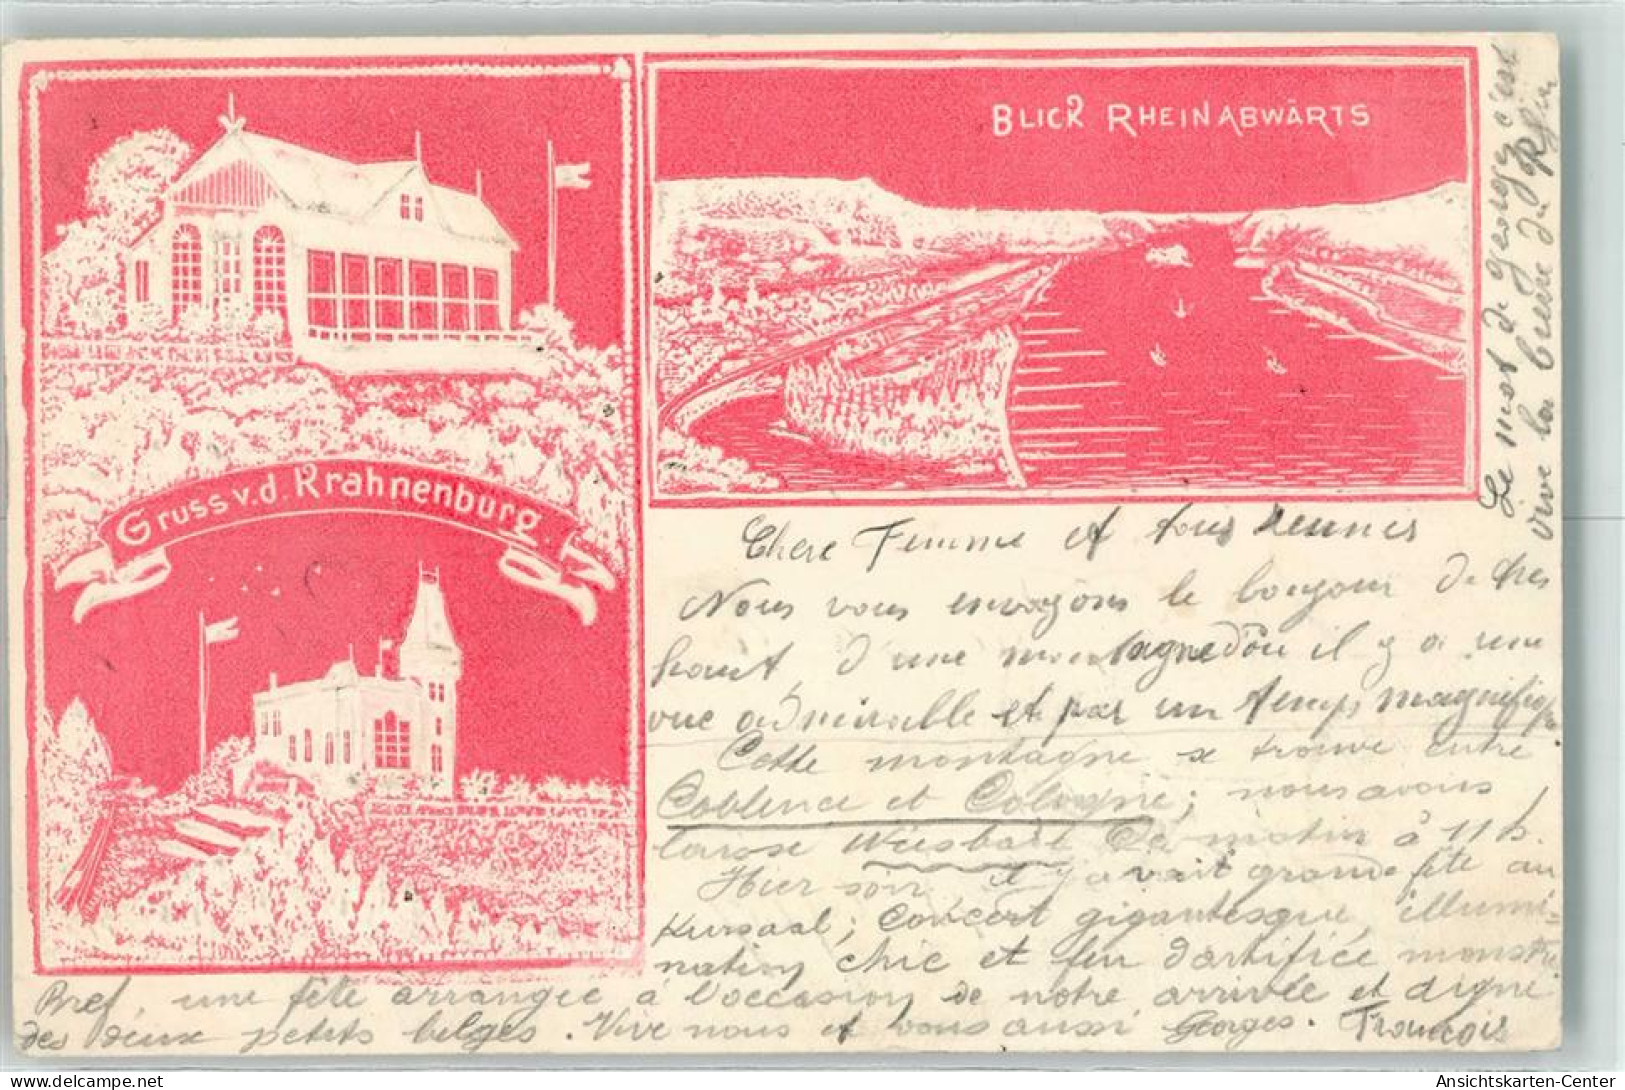 BLICK RHEINABWÄRTS
Gruss v.d. Krahnenburg.
Chere Femme et tous
Nous vous envoyons le bonjour de tres
haut, d'une montagne d'ou il y a une
vue admirable et par un temps magnifique
Cette montagne se trouve entre
Coblence et Cologne; nous avons
Wiesbade ce matin à 11 h.
Hier soir il y avait grande fête au
Kursaal; concert gigantesque, illumi-
nation chic et feu d'artifice monstre
Bref, une fête arrangée à l'occasion de notre arrivée et digne
des deux petits belges. Vive nous et vous aussi Georges. François
Le mot de georges c'est
vive la biere du Rhin
Ansichtskarten-Center